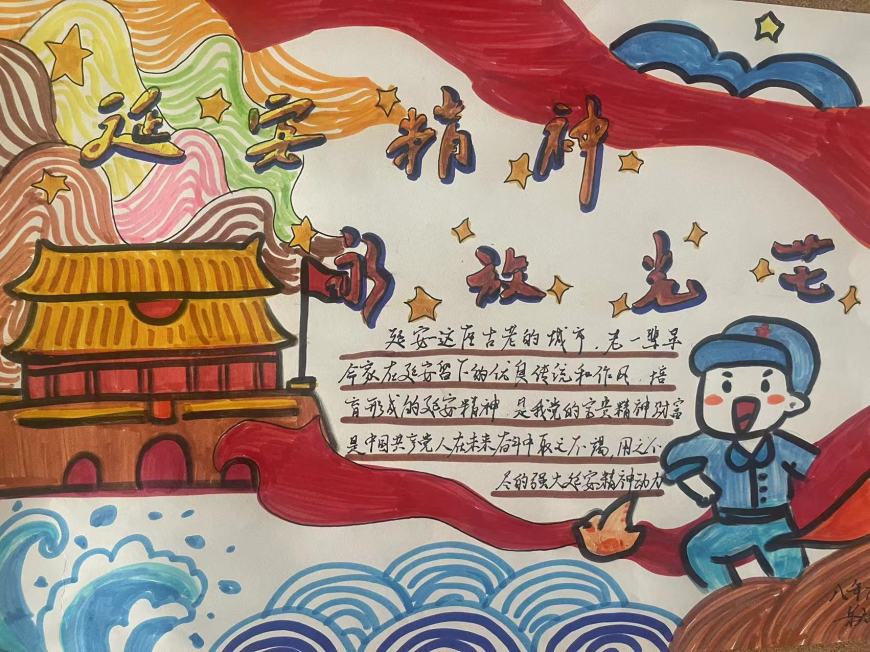 延安精神
永放光芒
延安这座古老的城市，老一辈革
命家在延安留下的优良传统和作风，培
育形成的延安精神，是我党的宝贵精神财富
是中国共产党人在未来奋斗中取之不竭，用之不
尽的强大延安精神动力
八年